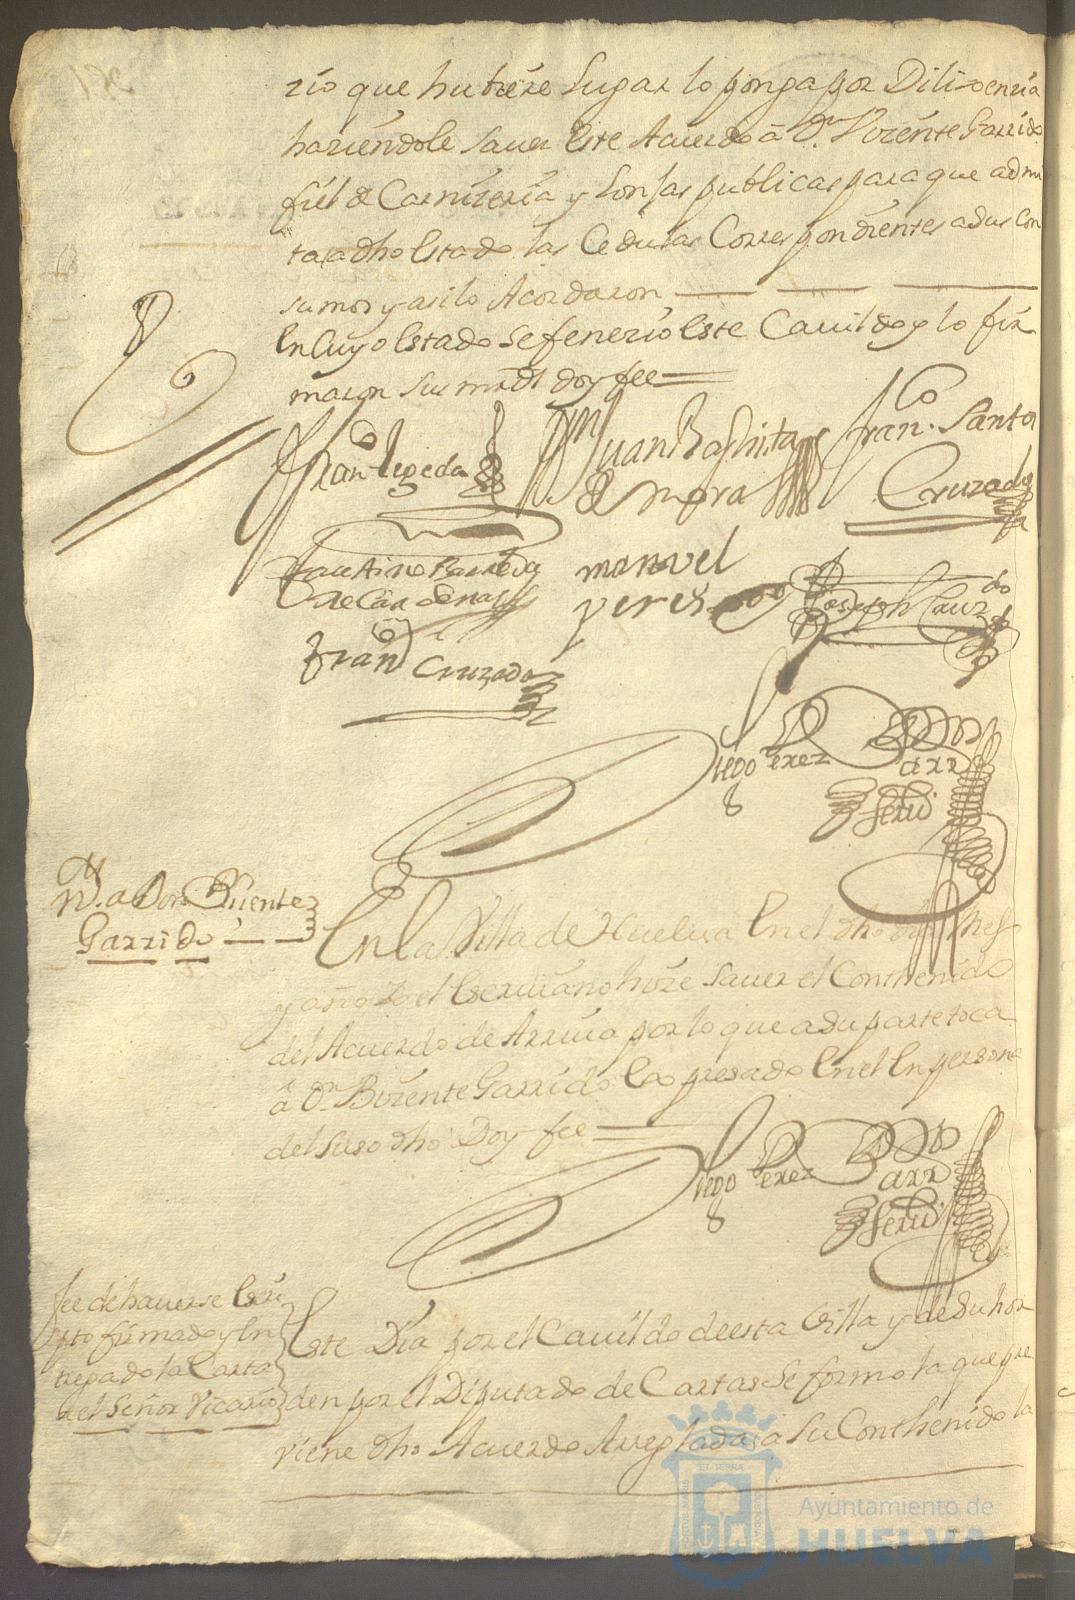 rio que hubiere lugar lo ponga por Dilixencia
haciendole saver Este Acuerdo à Dn. Vizente Garrido
fiel de Carnizeria y Lonjas publicas para que admi
ta a dho Estado las Cedulas Correspondientes a sus Con
sumos y asilo Acordaron
En Cuyo Estado se fenecio Este Cavildo y lo fir
maron sus mrds doy fee
Fran.co Tegeda
Dn Juan
de Mora
Fran.co Santos
Cruzado
Faustino Barreda
de Cardenas
manvel
peres
Joseph Cruzdo
Franco Cruzado
Diego Perez
N.n a Don Bizente
Garrido
En la Villa de Huelva En el dho dia mes
y año Yo el Escrivano hize saver el Conthenido
del Acuerdo de Arriva por lo que a su parte toca
à Dn. Bizente Garrido Espresado En el En persona
del suso dho Doy fee
Diego Perez
fee de haverse Escri
pto firmado y En
tregado la Carta
al Señor Vicario
Este Dia por el Cavildo de esta Villa y de su hor
den por el Diputado de Cartas Se formo la que pre
viene dho Acuerdo Arreglada a Su Conthenido la
Ayuntamiento de
HUELVA